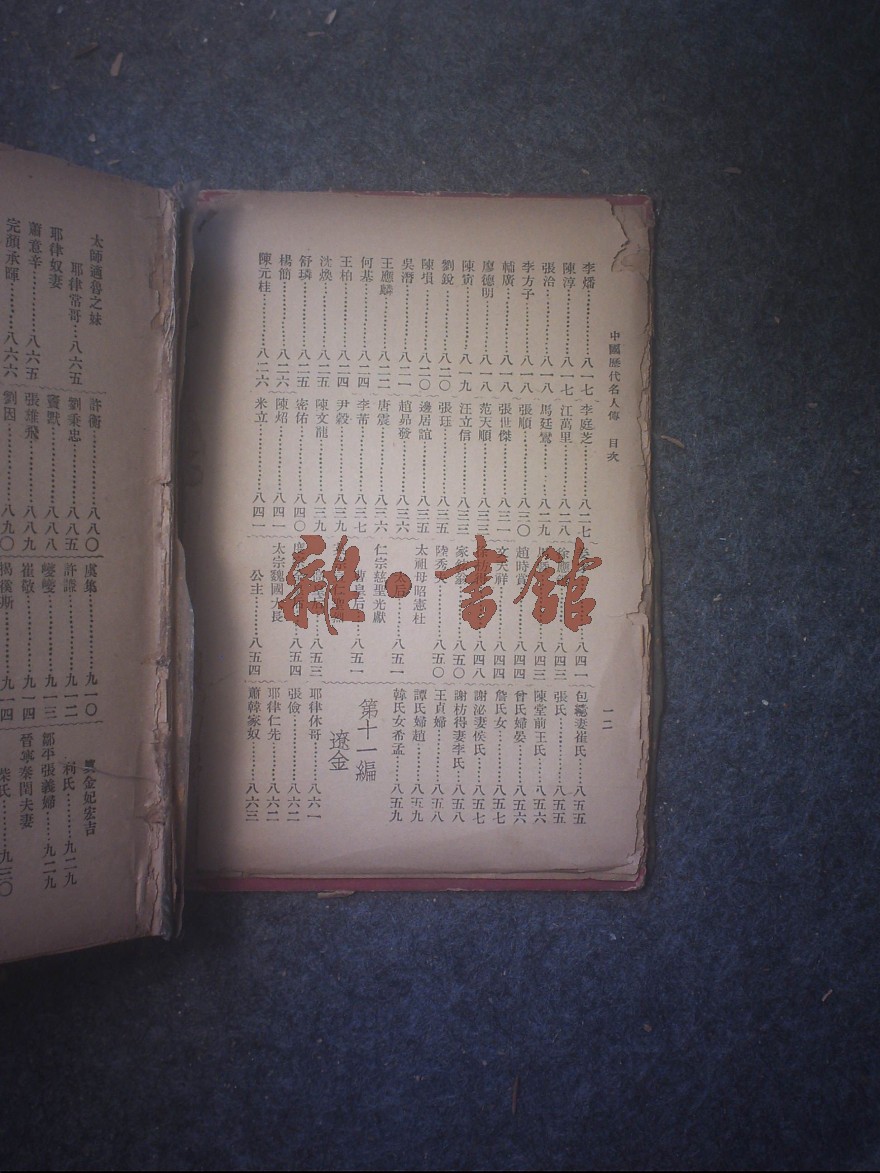 中國歷代名人傳 目次
一二
李燔………八一七
陳淳………八一七
張洽………八一八
李方子……八一八
輔廣………八一八
廖德明……八一八
陳宓………八一九
劉銳………八二〇
陳塤………八二〇
吳潛………八二一
王應麟……八二二
何基………八二四
王柏………八二四
沈煥………八二五
舒璘………八二五
楊簡………八二六
陳元桂……八二六
李庭芝……八二七
江萬里……八二八
馬廷鸞……八二九
張順………八三〇
張世傑……八三一
范天順……八三三
汪立信……八三三
張珏………八三五
邊居誼……八三五
趙昴發……八三六
唐震………八三六
李芾………八三七
尹穀………八三九
陳文龍……八三九
密佑………八四〇
陳炤………八四一
米立………八四一
八四一
八四三
八四三
趙時賞……八四四
文天祥……八四四
八四八
八五〇
陸秀………八五〇
太祖母昭憲杜
太后………八五一
仁宗慈聖光獻
曹皇后……八五一
八五三
八五四
太宗魏國大長
公主………八五四
包繶妻崔氏…八五五
張氏………八五五
陳堂前王氏…八五六
曾氏婦晏……八五六
詹氏女………八五七
謝泌妻侯氏…八五七
謝枋得妻李氏…八五八
王貞婦………八五八
譚氏婦趙……八五九
韓氏女希孟…八五九
第十一編
遼金
耶律休哥……八六一
張儉………八六二
耶律仁先……八六二
蕭韓家奴……八六三
太師適魯之妹
耶律常哥……八六五
耶律奴妻
蕭意辛………八六五
完顏承暉……八六六
許衡………八八〇
劉秉忠……八八五
竇默………八八八
張雄飛……八八九
劉因………八九〇
虞集………九一〇
許謙………九一二
巙巙………九一三
崔敬………九一四
揭傒斯……九一四
金妃宏吉
剌氏………九二九
鄒平張義婦…九二九
晉寧秦閏夫妻
柴氏………九三〇
雜·書館